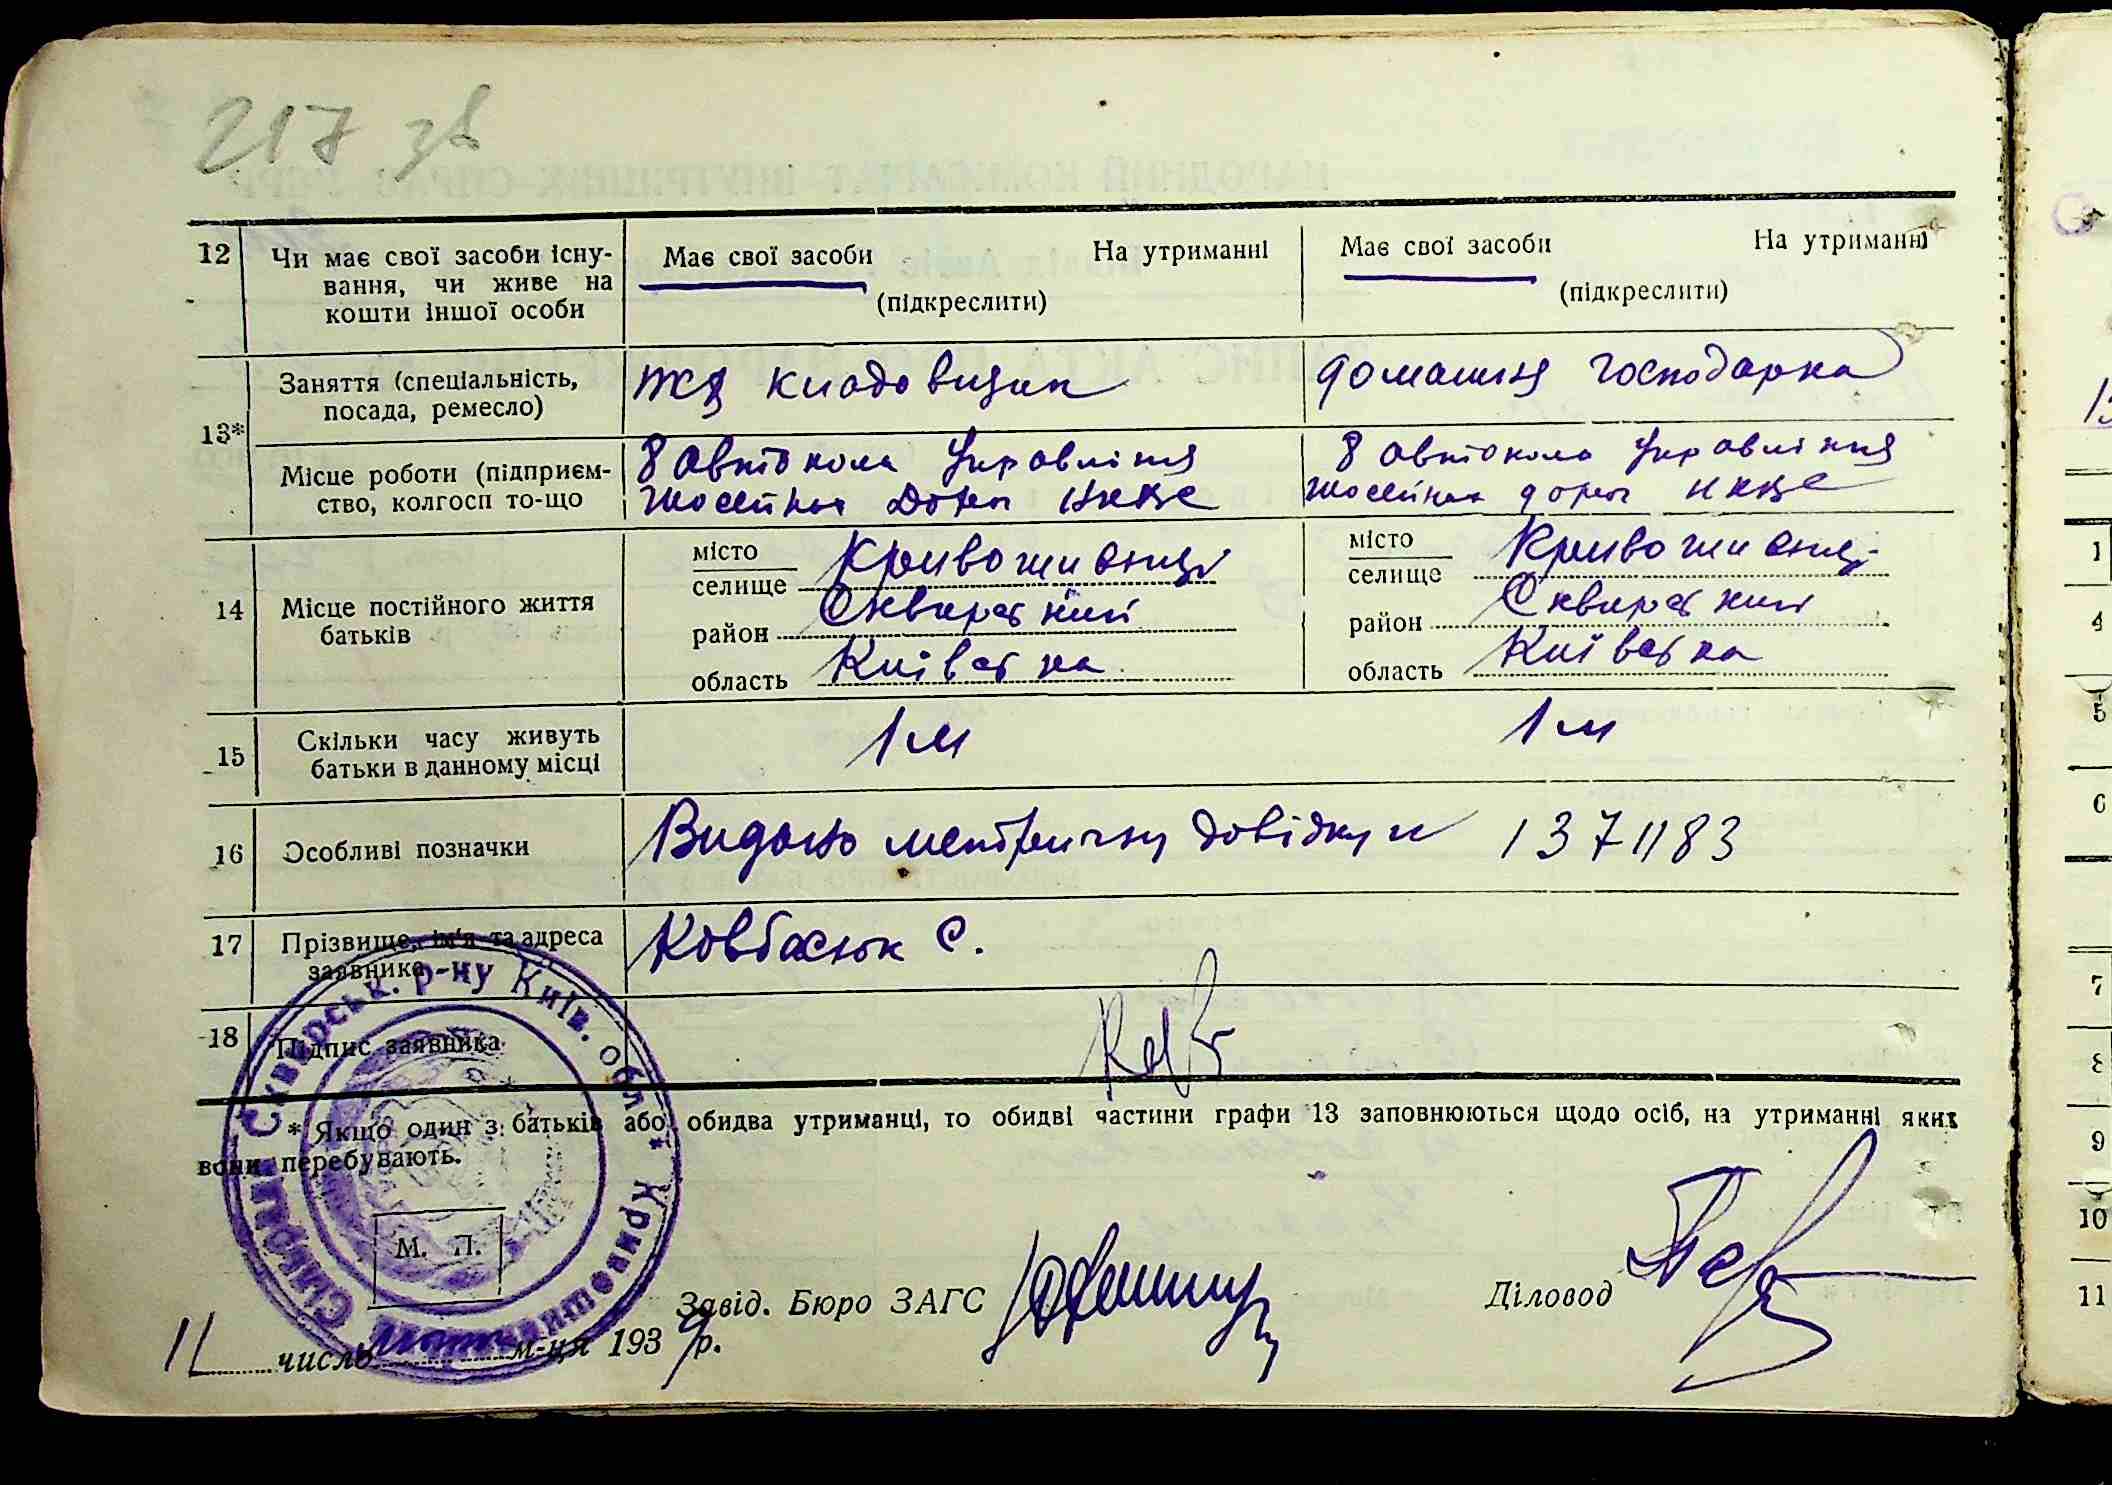 217 зв
12 Чи має свої засоби існу- Має свої засоби На утриманні Має свої засоби На утриманні
вання, чи живе на
кошти іншої особи (підкреслити) (підкреслити)
Заняття (спеціальність, кладовщик домашня господарка
посада, ремесло)
13*
Місце роботи (підприєм- 8 автокола Управління 8 автокола Управління
ство, колгосп то-що
місто Кривошиєнці місто Кривошиєнці
селище селище
14 Місце постійного життя
батьків
район Сквирський район Сквирський
область Київська область Київська
15 Скільки часу живуть 1 м 1 м
батьки в данному місці
16 Особливі позначки Видано метричну довідку № 1371183
17 Прізвище, ім'я та адреса Ковбасюк С.
заявника
18 Підпис заявника
* Якщо один з батьків або обидва утриманці, то обидві частини графи 13 заповнюються щодо осіб, на утриманні яких
вони перебувають.
Сквирськ. р-ну Київ. обл.
М. П.
Завід. Бюро ЗАГС
Діловод
11 число м-ця 1939 р.
1
4
5
6
7
8
9
10
11